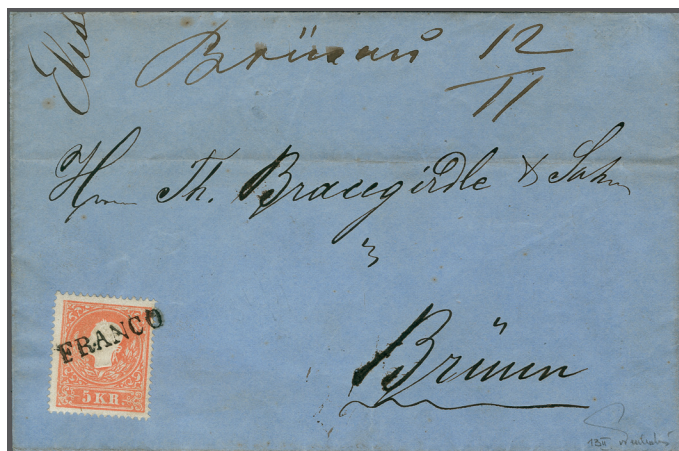 Brünau 12/11
Hrn Th. Bracegirdle & Sohn
in
Brünn
FRANCO
5 KR.
13II